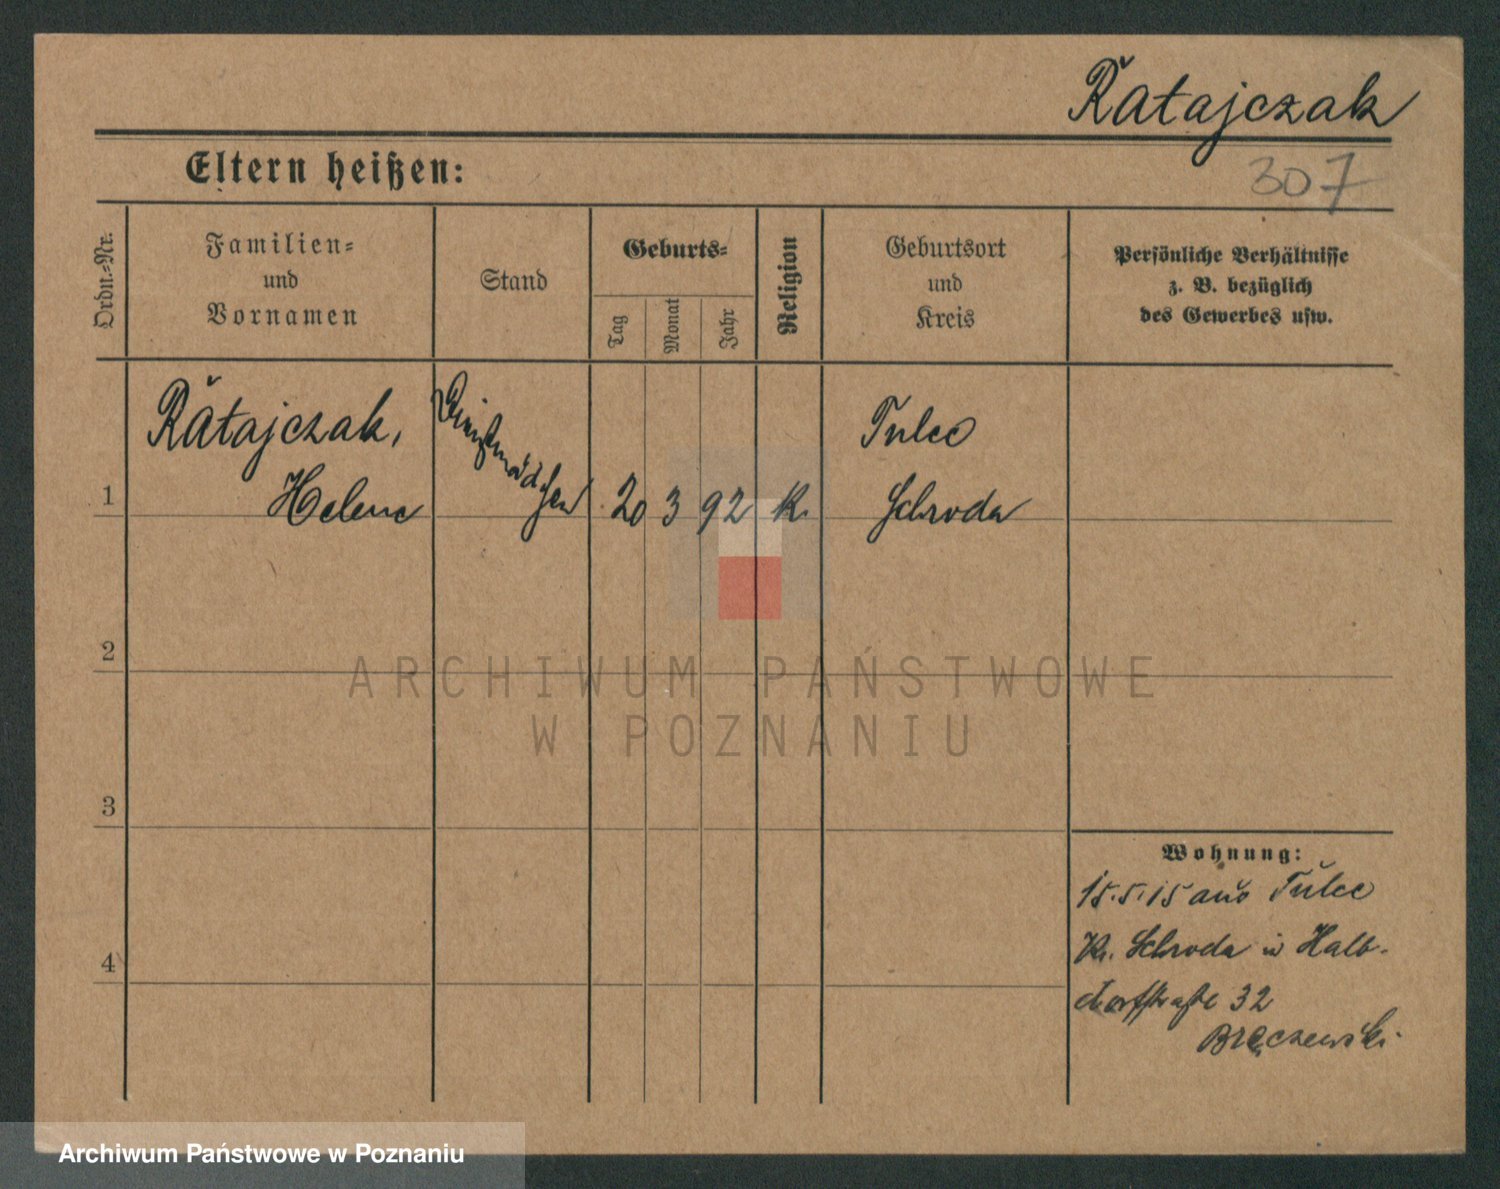 Ratajczak
307
Eltern heißen:
Ordn.-Nr.
Familien-
und
Vornamen
Stand
Geburts-
Tag
Monat
Jahr
Religion
Geburtsort
und
Kreis
Persönliche Verhältnisse
z. B. bezüglich
des Gewerbes usw.
1
Ratajczak,
Helene
Dienstmädchen
20 3 92 K.
Tulce
Schroda
2
3
4
Wohnung:
15.5.15 aus Tulce
Kr. Schroda in Halb-
dorfstraße 32
Bręczewski
ARCHIWUM PAŃSTWOWE
W POZNANIU
Archiwum Państwowe w Poznaniu